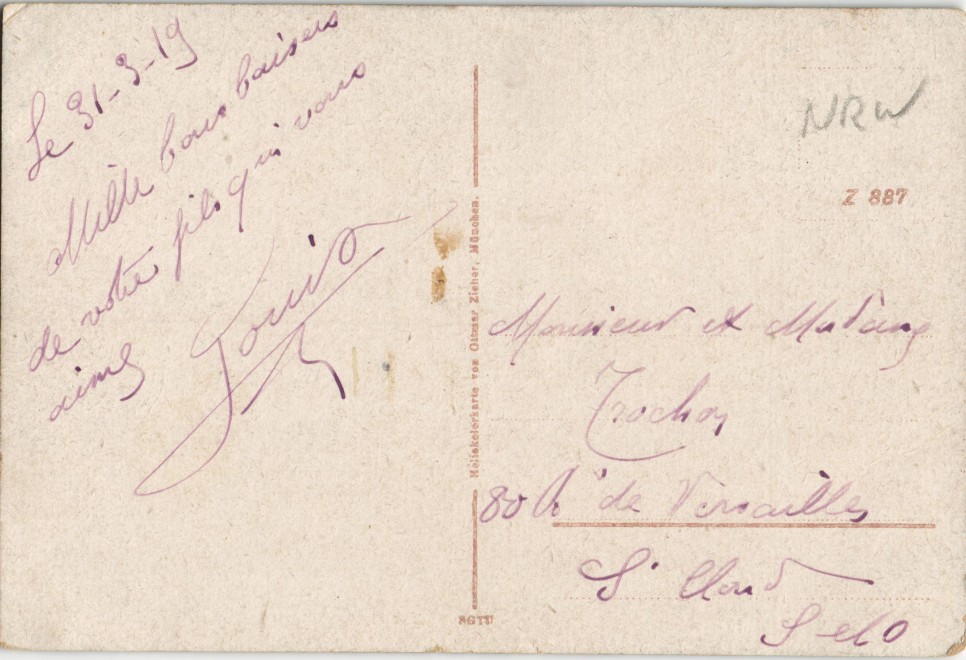 Le 31-3-19
Mille bons baisers
de votre fils qui vous
aime Louis
NRW
Z 887
Heliokolorkarte von Ottmar Zieher, München.
Monsieur et Madame
Trochon
80 R de Versailles
St Cloud
S et O